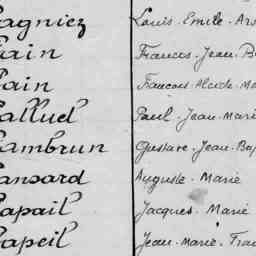 Lagniez Louis - Emile - Ars
Lain Francois - Jean - B
Lain Francois - Alcide - Ma
Lalluel Paul - Jean - Marie
Lambrun Gustave - Jean - Bap
Lansard Auguste - Marie
Lapail Jacques - Marie
Lapeil Jean - Marie - Fran